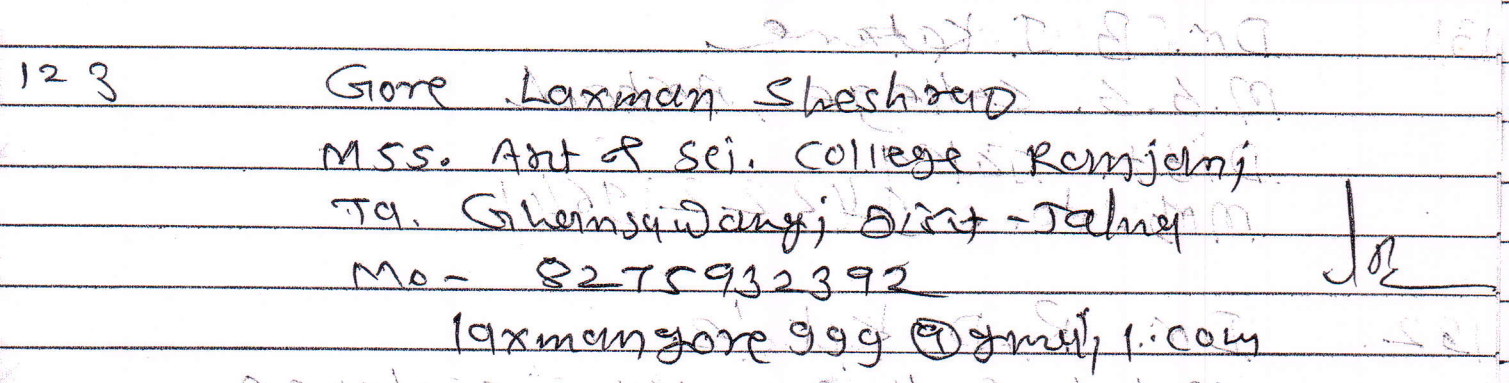 123 Gore Laxman Sheshrao
MSS. Art & Sci. College Ramjani
Ta. Ghansawangi Dist - Jalna
Mo - 8275932392
laxmangore999@gmail.com